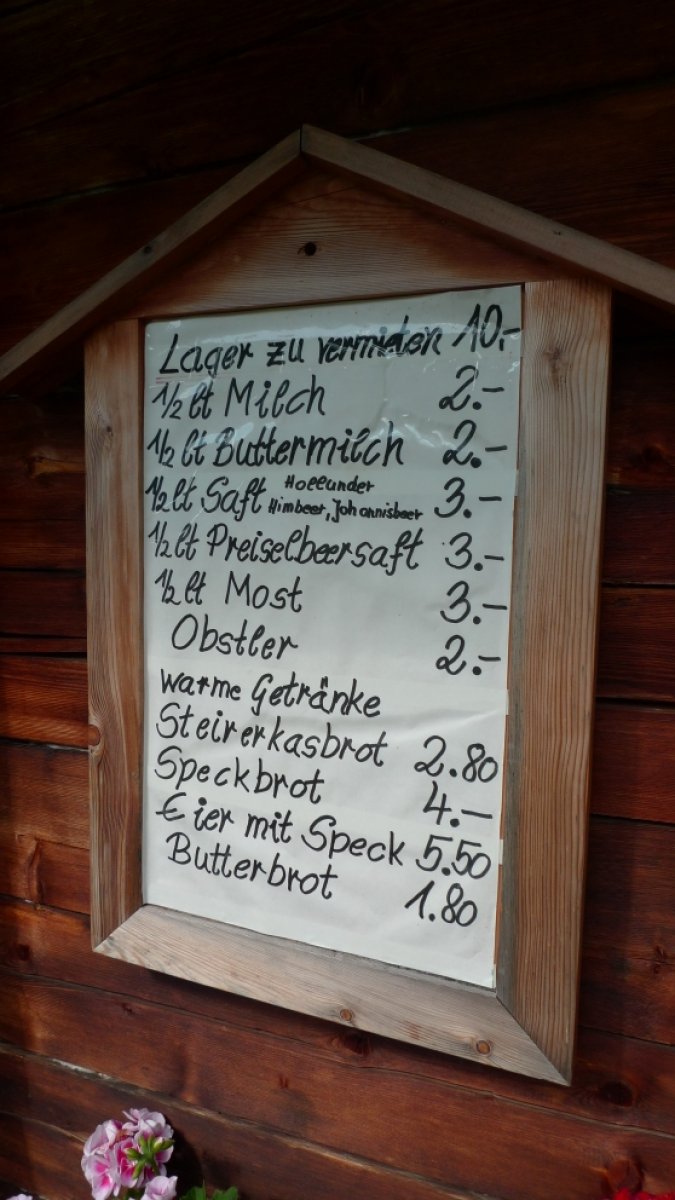 Lager zu vermieten 10.-
1/2 lt Milch 2.-
1/2 lt Buttermilch 2.-
1/2 lt Saft Hollunder Himbeer, Johannisbeer 3.-
1/2 lt Preiselbeersaft 3.-
1/2 lt Most 3.-
Obstler 2.-
warme Getränke
Steirerkasbrot 2.80
Speckbrot 4.-
Eier mit Speck 5.50
Butterbrot 1.80